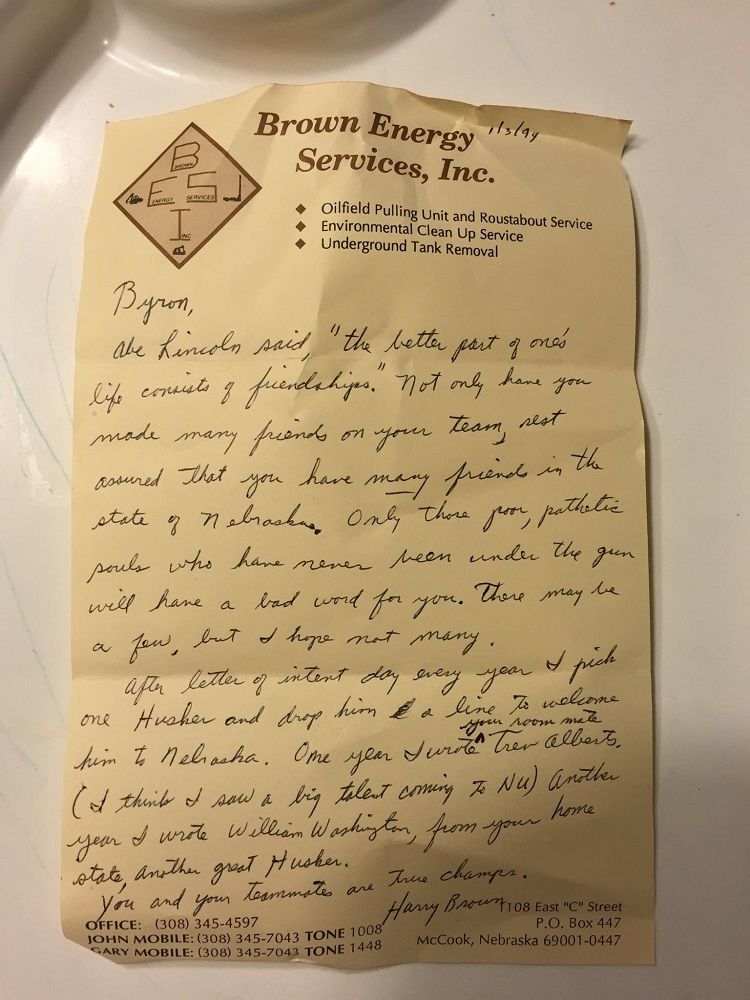 Brown Energy
Services, Inc.
1/3/94
B
BROWN
E S
ENERGY SERVICES
I
INC
◆ Oilfield Pulling Unit and Roustabout Service
◆ Environmental Clean Up Service
◆ Underground Tank Removal
Byron,
Abe Lincoln said, "the better part of one's
life consists of friendships." Not only have you
made many friends on your team, rest
assured that you have many friends in the
state of Nebraska. Only those poor, pathetic
souls who have never been under the gun
will have a bad word for you. There may be
a few, but I hope not many.
After letter of intent day every year I pick
one Husker and drop him a line to welcome
your room mate
him to Nebraska. One year I wrote ^ Trev Alberts.
(I think I saw a big talent coming to NU) Another
year I wrote William Washington, from your home
state, another great Husker.
You and your teammates are true champs.
Harry Brown
OFFICE: (308) 345-4597
JOHN MOBILE: (308) 345-7043 TONE 1008
GARY MOBILE: (308) 345-7043 TONE 1448
1108 East "C" Street
P.O. Box 447
McCook, Nebraska 69001-0447